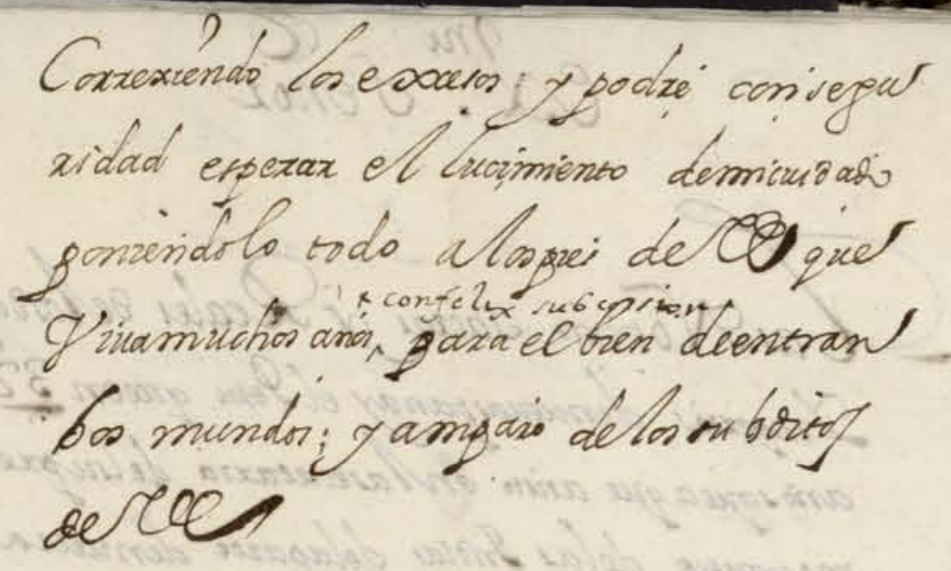 Correxiendo los excesos; y podre con segu
ridad esperar el lucimiento de mi cuidado
poniendolo todo a los pies de VM que
Viva muchos años, para el bien de entran
con felix subcesion
bos mundos; y amparo de los subditos
de VM